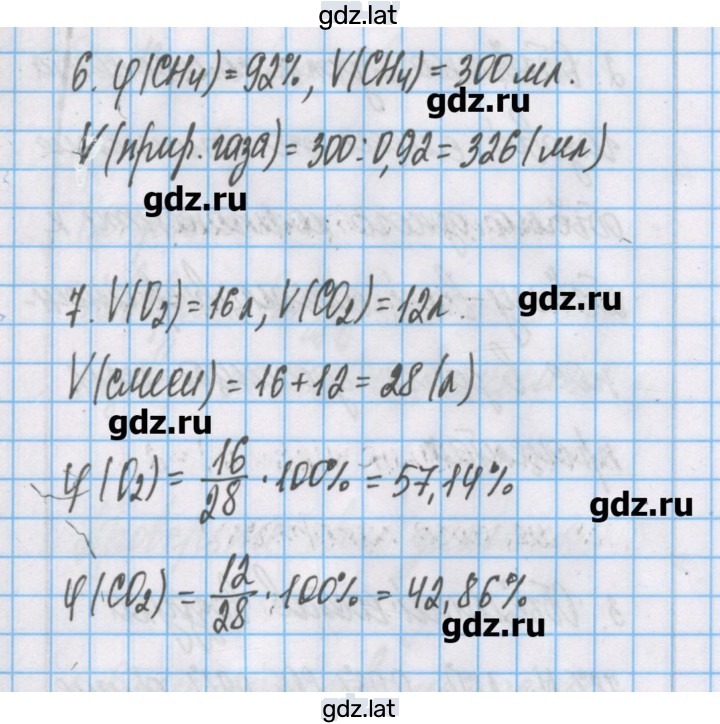 gdz.lat
6. φ(CH₄) = 92%, V(CH₄) = 300 мл.
gdz.ru
V(прир. газа) = 300:0,92 = 326 (мл)
gdz.ru
7. V(O₂) = 16 л, V(CO₂) = 12 л.
gdz.ru
V(смеси) = 16 + 12 = 28 (л)
gdz.ru
φ(O₂) = 16/28 · 100% = 57,14%
gdz.ru
φ(CO₂) = 12/28 · 100% = 42,86%
gdz.ru
gdz.lat